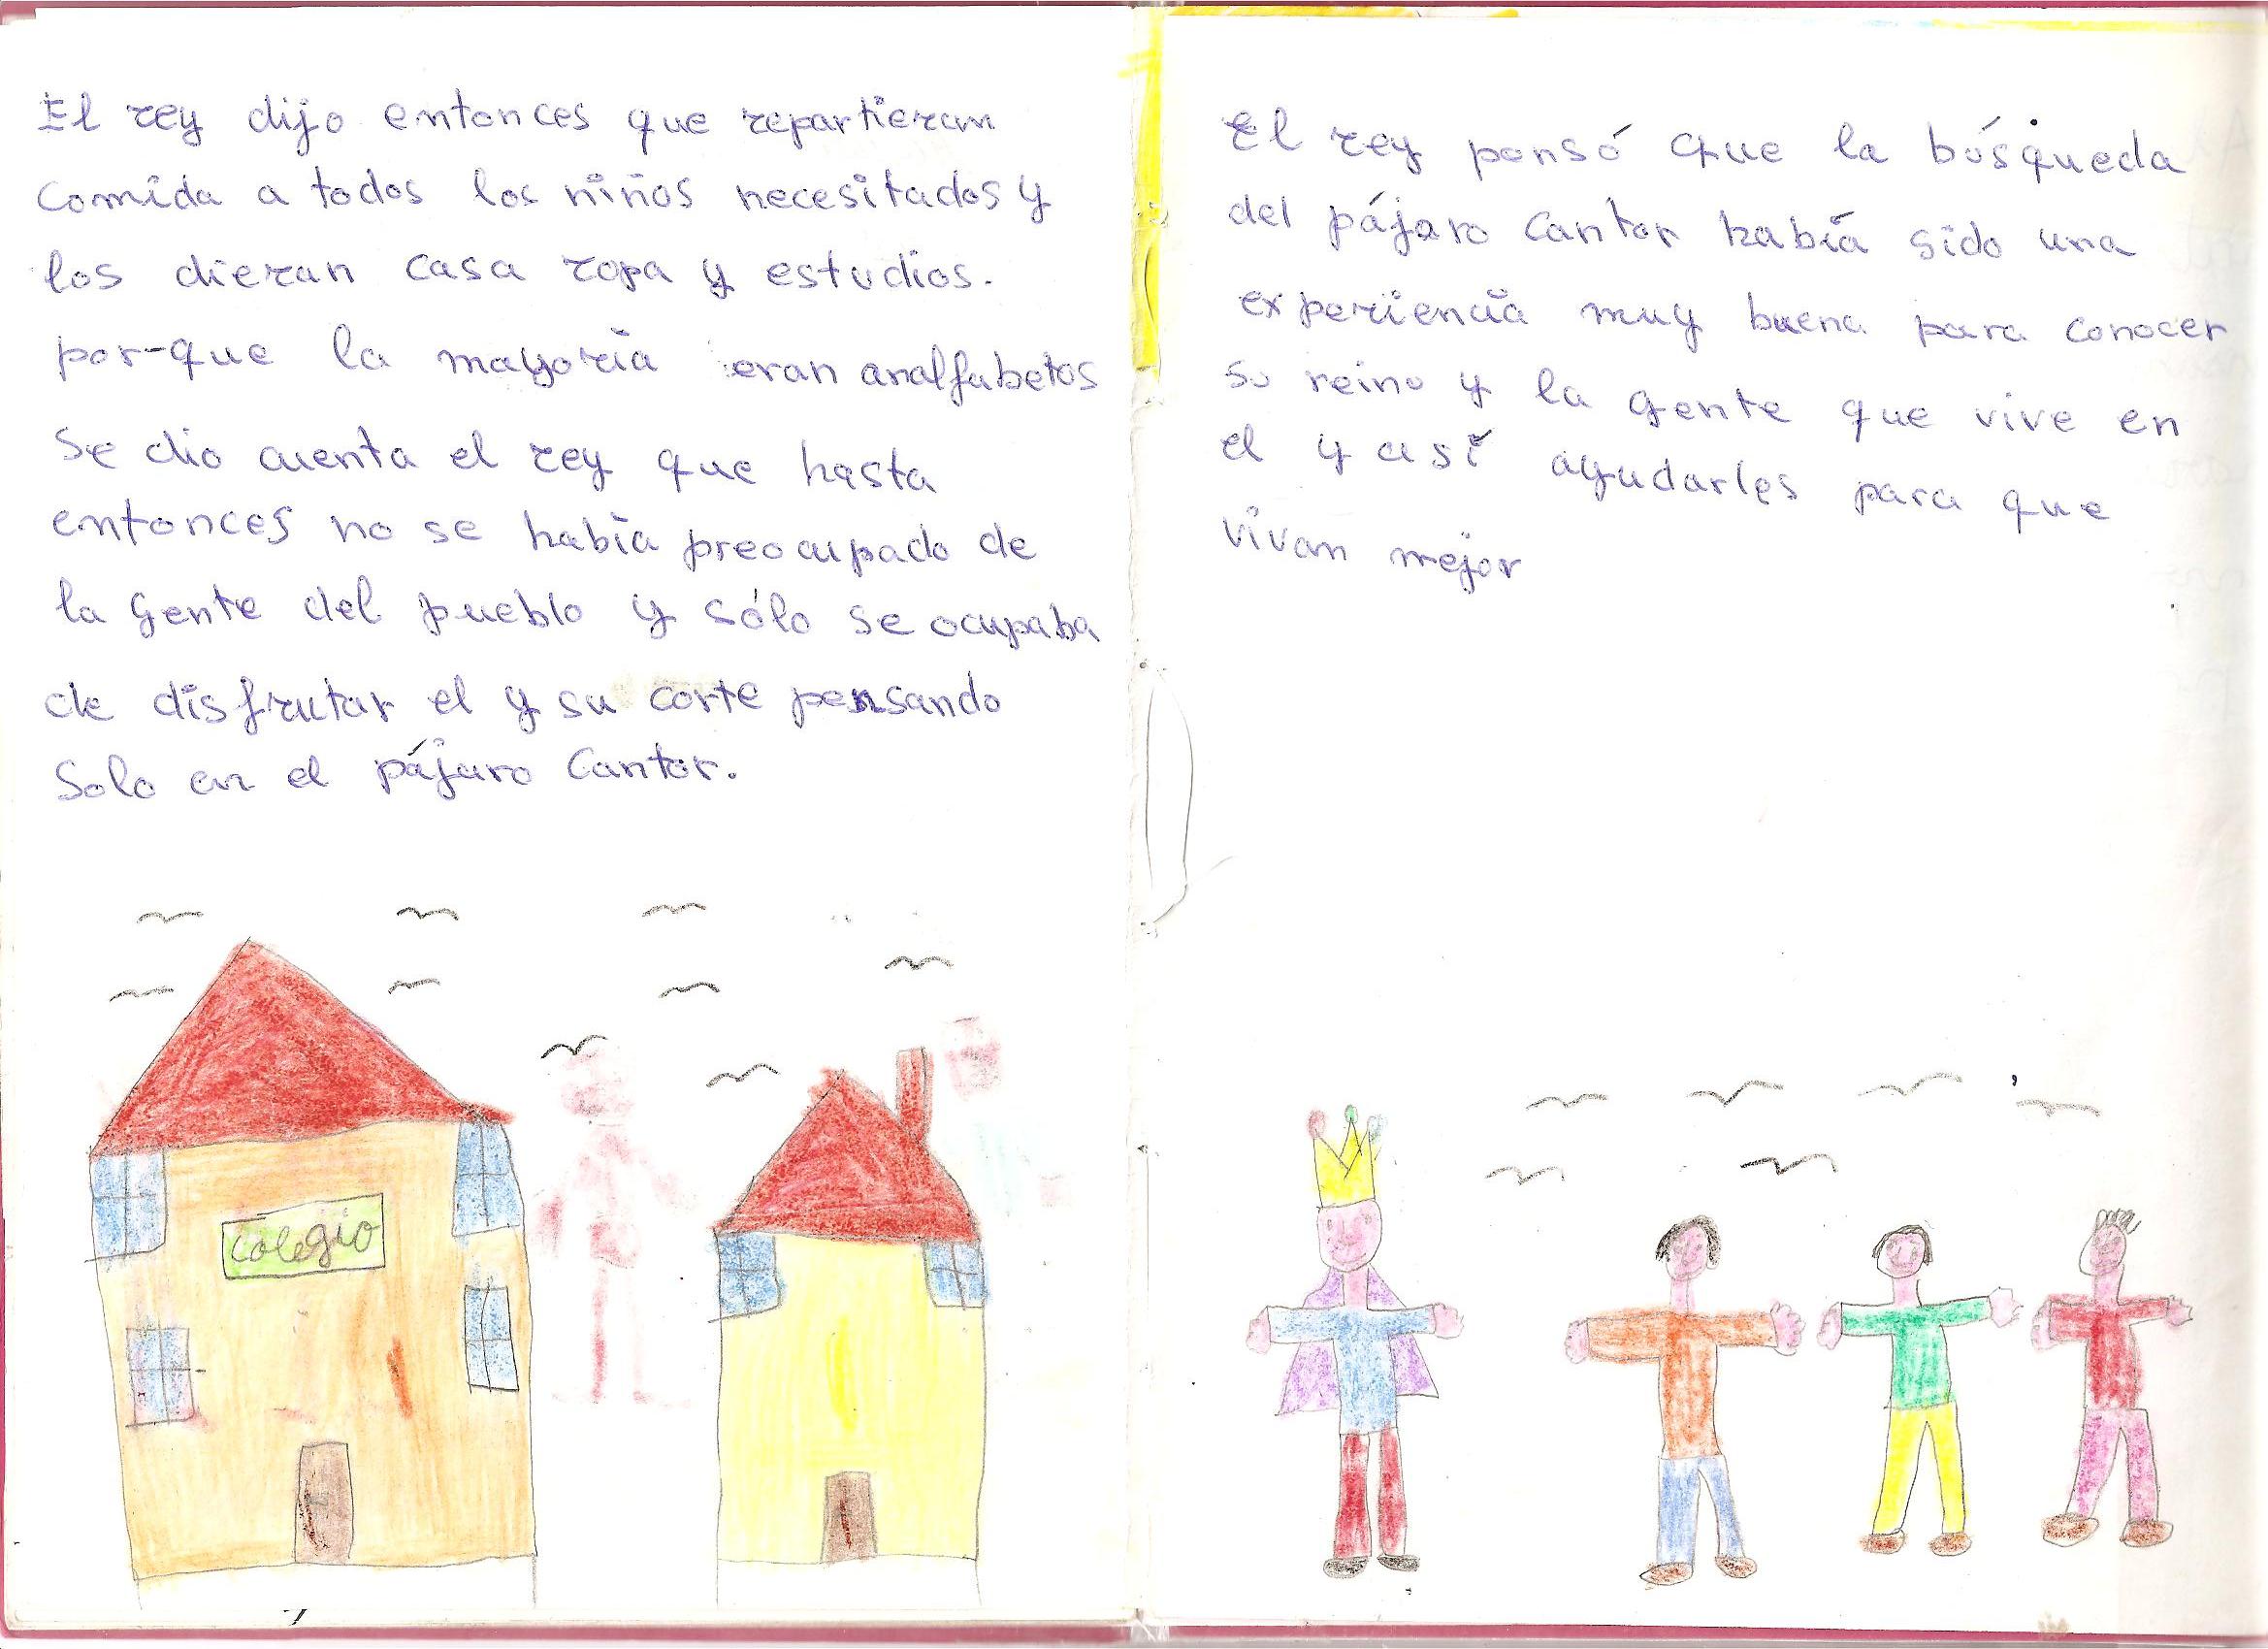 El rey dijo entonces que repartieran
comida a todos los niños necesitados y
los dieran casa ropa y estudios.
por-que la mayoría eran analfabetos
Se dio cuenta el rey que hasta
entonces no se había preocupado de
la gente del pueblo y sólo se ocupaba
de disfrutar el y su corte pensando
Solo en el pájaro Cantor.
Colegio
El rey pensó que la búsqueda
del pájaro Cantor había sido una
experiencia muy buena para conocer
su reino y la gente que vive en
el y así ayudarles para que
vivan mejor